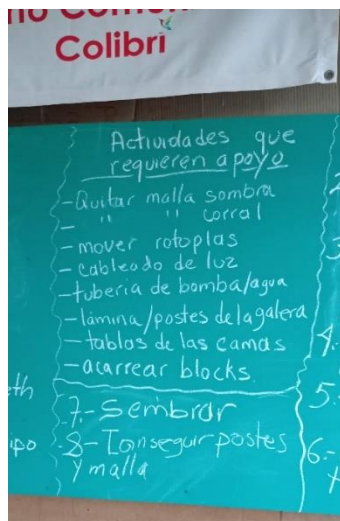 Colibrí
Actividades que
requieren apoyo
- Quitar malla sombra
- " " corral
- mover rotoplas
- cableado de luz
- tubería de bomba/agua
- lámina/postes de la galera
- tablas de las camas
- acarrear blocks
7.- Sembrar
8- Conseguir postes
y malla
4.-
5.-
6.-